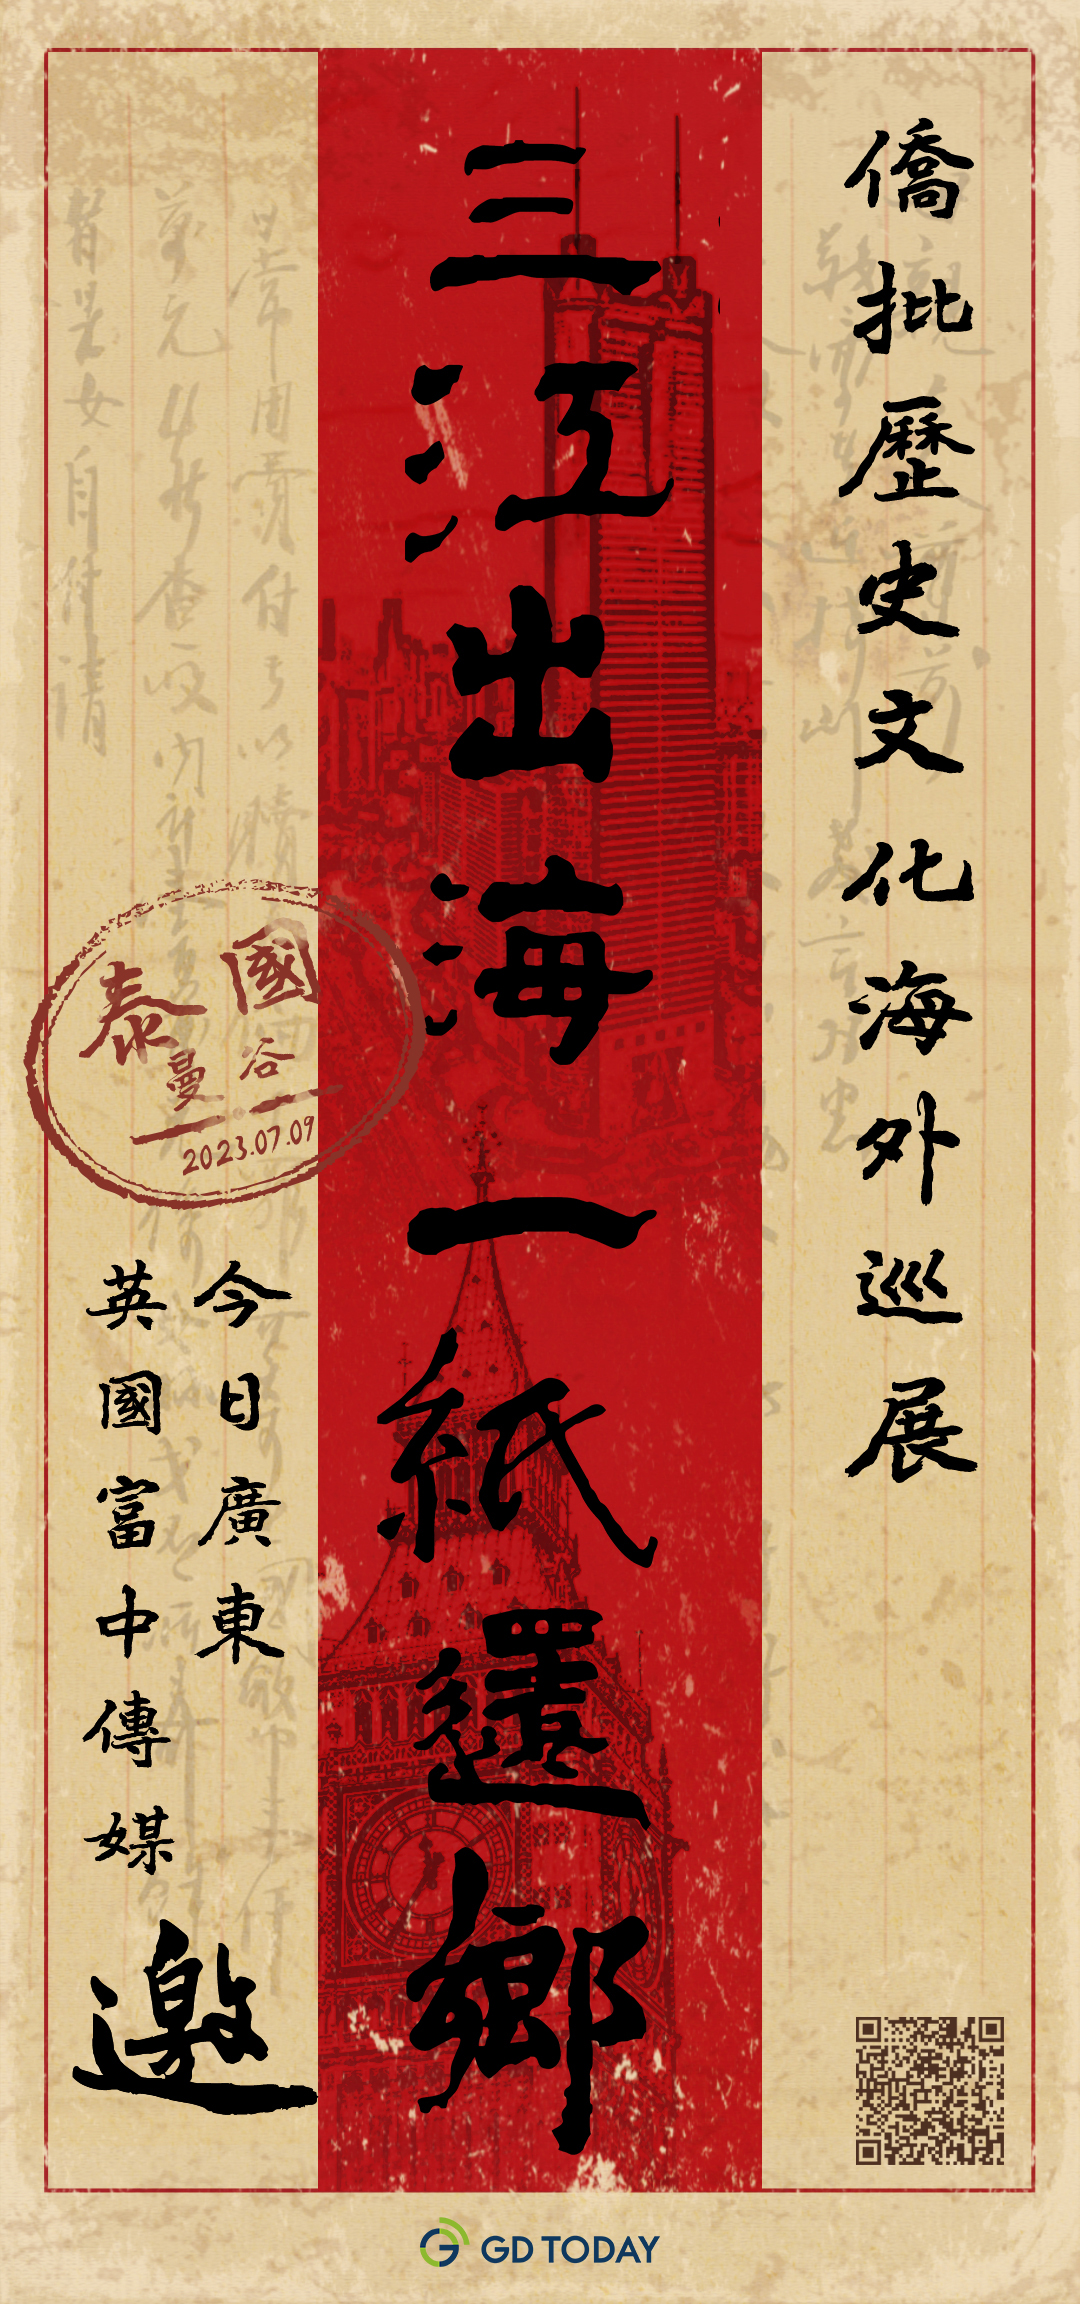 僑批歷史文化海外巡展
三江出海一紙還鄉
今日廣東
英國富中傳媒
邀
泰國
曼谷
2023.07.09
GD TODAY